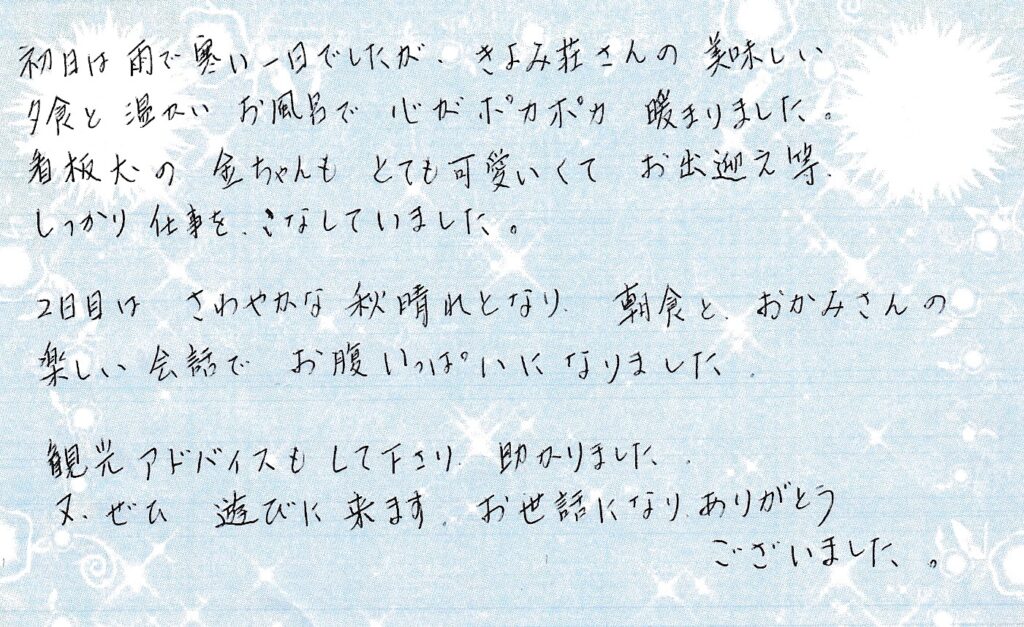 初日は雨で寒い一日でしたが、きよみ荘さんの美味しい
夕食と温かいお風呂で心がポカポカ暖まりました。
看板犬の金ちゃんもとても可愛いくてお出迎え等、
しっかり仕事を、こなしていました。
2日目はさわやかな秋晴れとなり、朝食と、おかみさんの
楽しい会話でお腹いっぱいになりました、
観光アドバイスもして下さり、助かりました、
又、ぜひ遊びに来ます、お世話になり、ありがとう
ございました、。